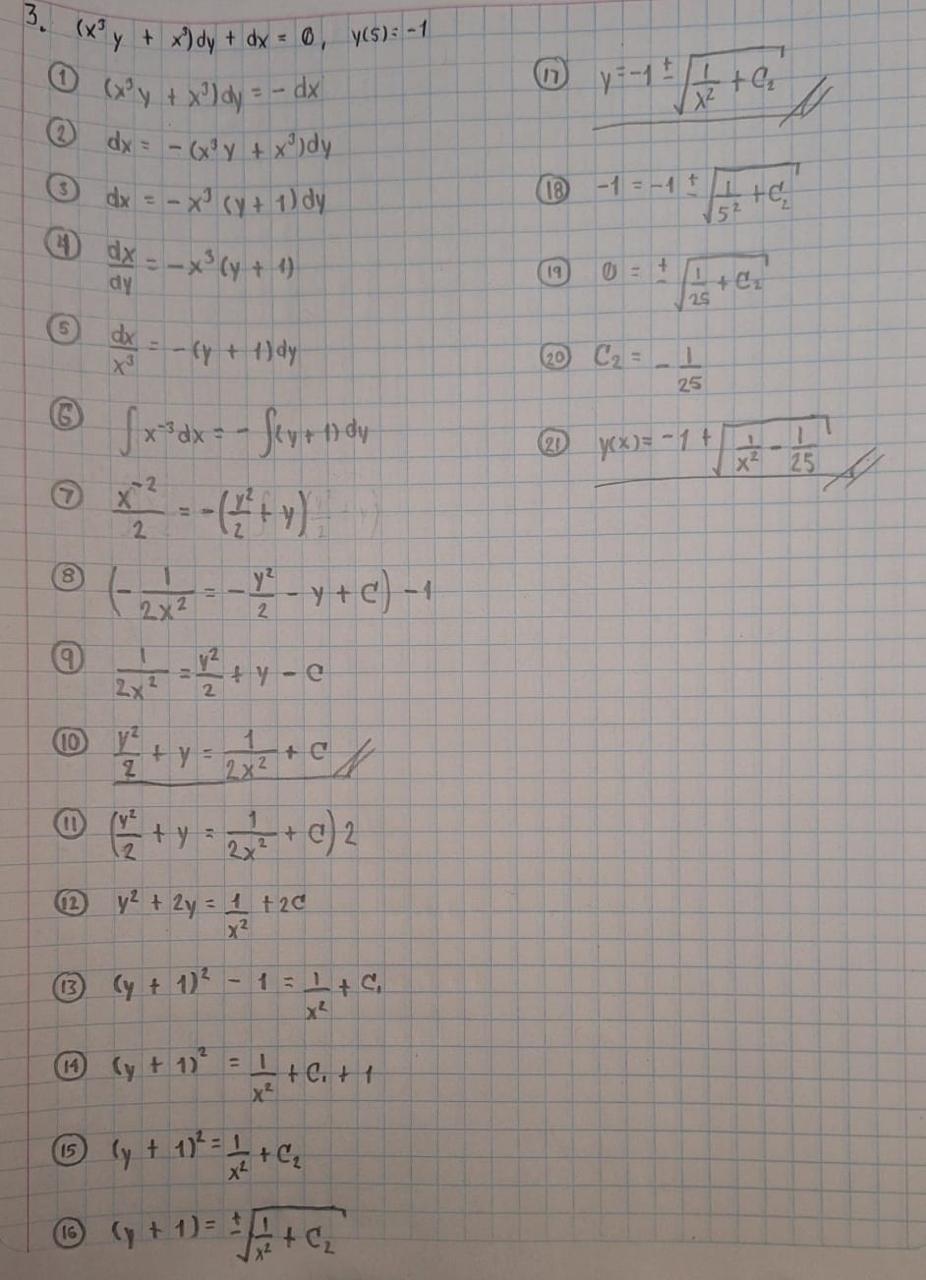 3. (x³y + x³)dy + dx = 0, y(5) = -1
① (x³y + x³)dy = - dx
② dx = - (x³y + x³)dy
③ dx = - x³ (y + 1)dy
④ dx/dy = - x³ (y + 1)
⑤ dx/x³ = - (y + 1)dy
⑥ ∫ x⁻³ dx = - ∫(y + 1) dy
⑦ x⁻²/2 = - (y²/2 + y)
⑧ (- 1/2x² = - y²/2 - y + C) - 1
⑨ 1/2x² = y²/2 + y - C
⑩ y²/2 + y = 1/2x² + C //
⑪ (y²/2 + y = 1/2x² + C) 2
⑫ y² + 2y = 1/x² + 2C
⑬ (y + 1)² - 1 = 1/x² + C₁
⑭ (y + 1)² = 1/x² + C₁ + 1
⑮ (y + 1)² = 1/x² + C₂
⑯ (y + 1) = ±√(1/x² + C₂)
⑰ y = -1 ± √(1/x² + C₂) //
⑱ -1 = -1 ± √(1/5² + C₂)
⑲ 0 = ± √(1/25 + C₂)
⑳ C₂ = - 1/25
㉑ y(x) = -1 + √(1/x² - 1/25) //